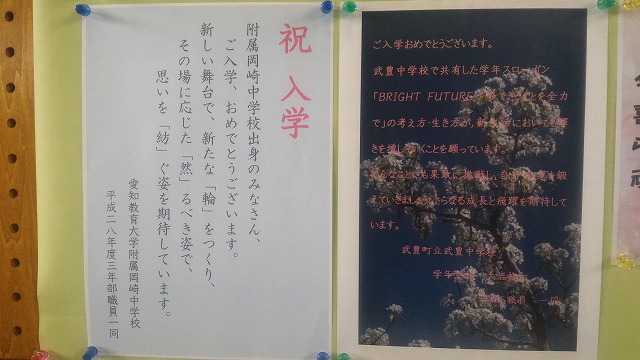 祝 入学
附属岡崎中学校出身のみなさん、
ご入学、おめでとうございます。
新しい舞台で、新たな「輪」をつくり、
その場に応じた「然」るべき姿で、
思いを「紡」ぐ姿を期待しています。
愛知教育大学附属岡崎中学校
平成二八年度三年部職員一同
ご入学おめでとうございます。
武豊中学校で共有した学年スローガン
「BRIGHT FUTURE ことを全力
で」の考え方・生き方が、においても輝
きを増していくことを願っています。
なことにも果敢に挑戦し、を鍛
えていきましょう。さらなる成長と飛躍を期待して
います。
武豊町立武豊中学校
学年
職員 一同